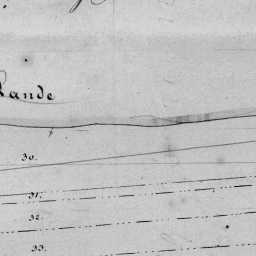 Lande
30.
31.
32.
33.